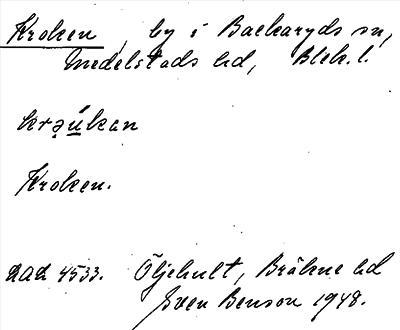 Kroken, by i Backaryds sn,
Medelstads hd, Blek. l.
krǫú̲kan
Kroken.
LAL 4533. Öljehult, Bräkne hd
Sven Benson 1948.